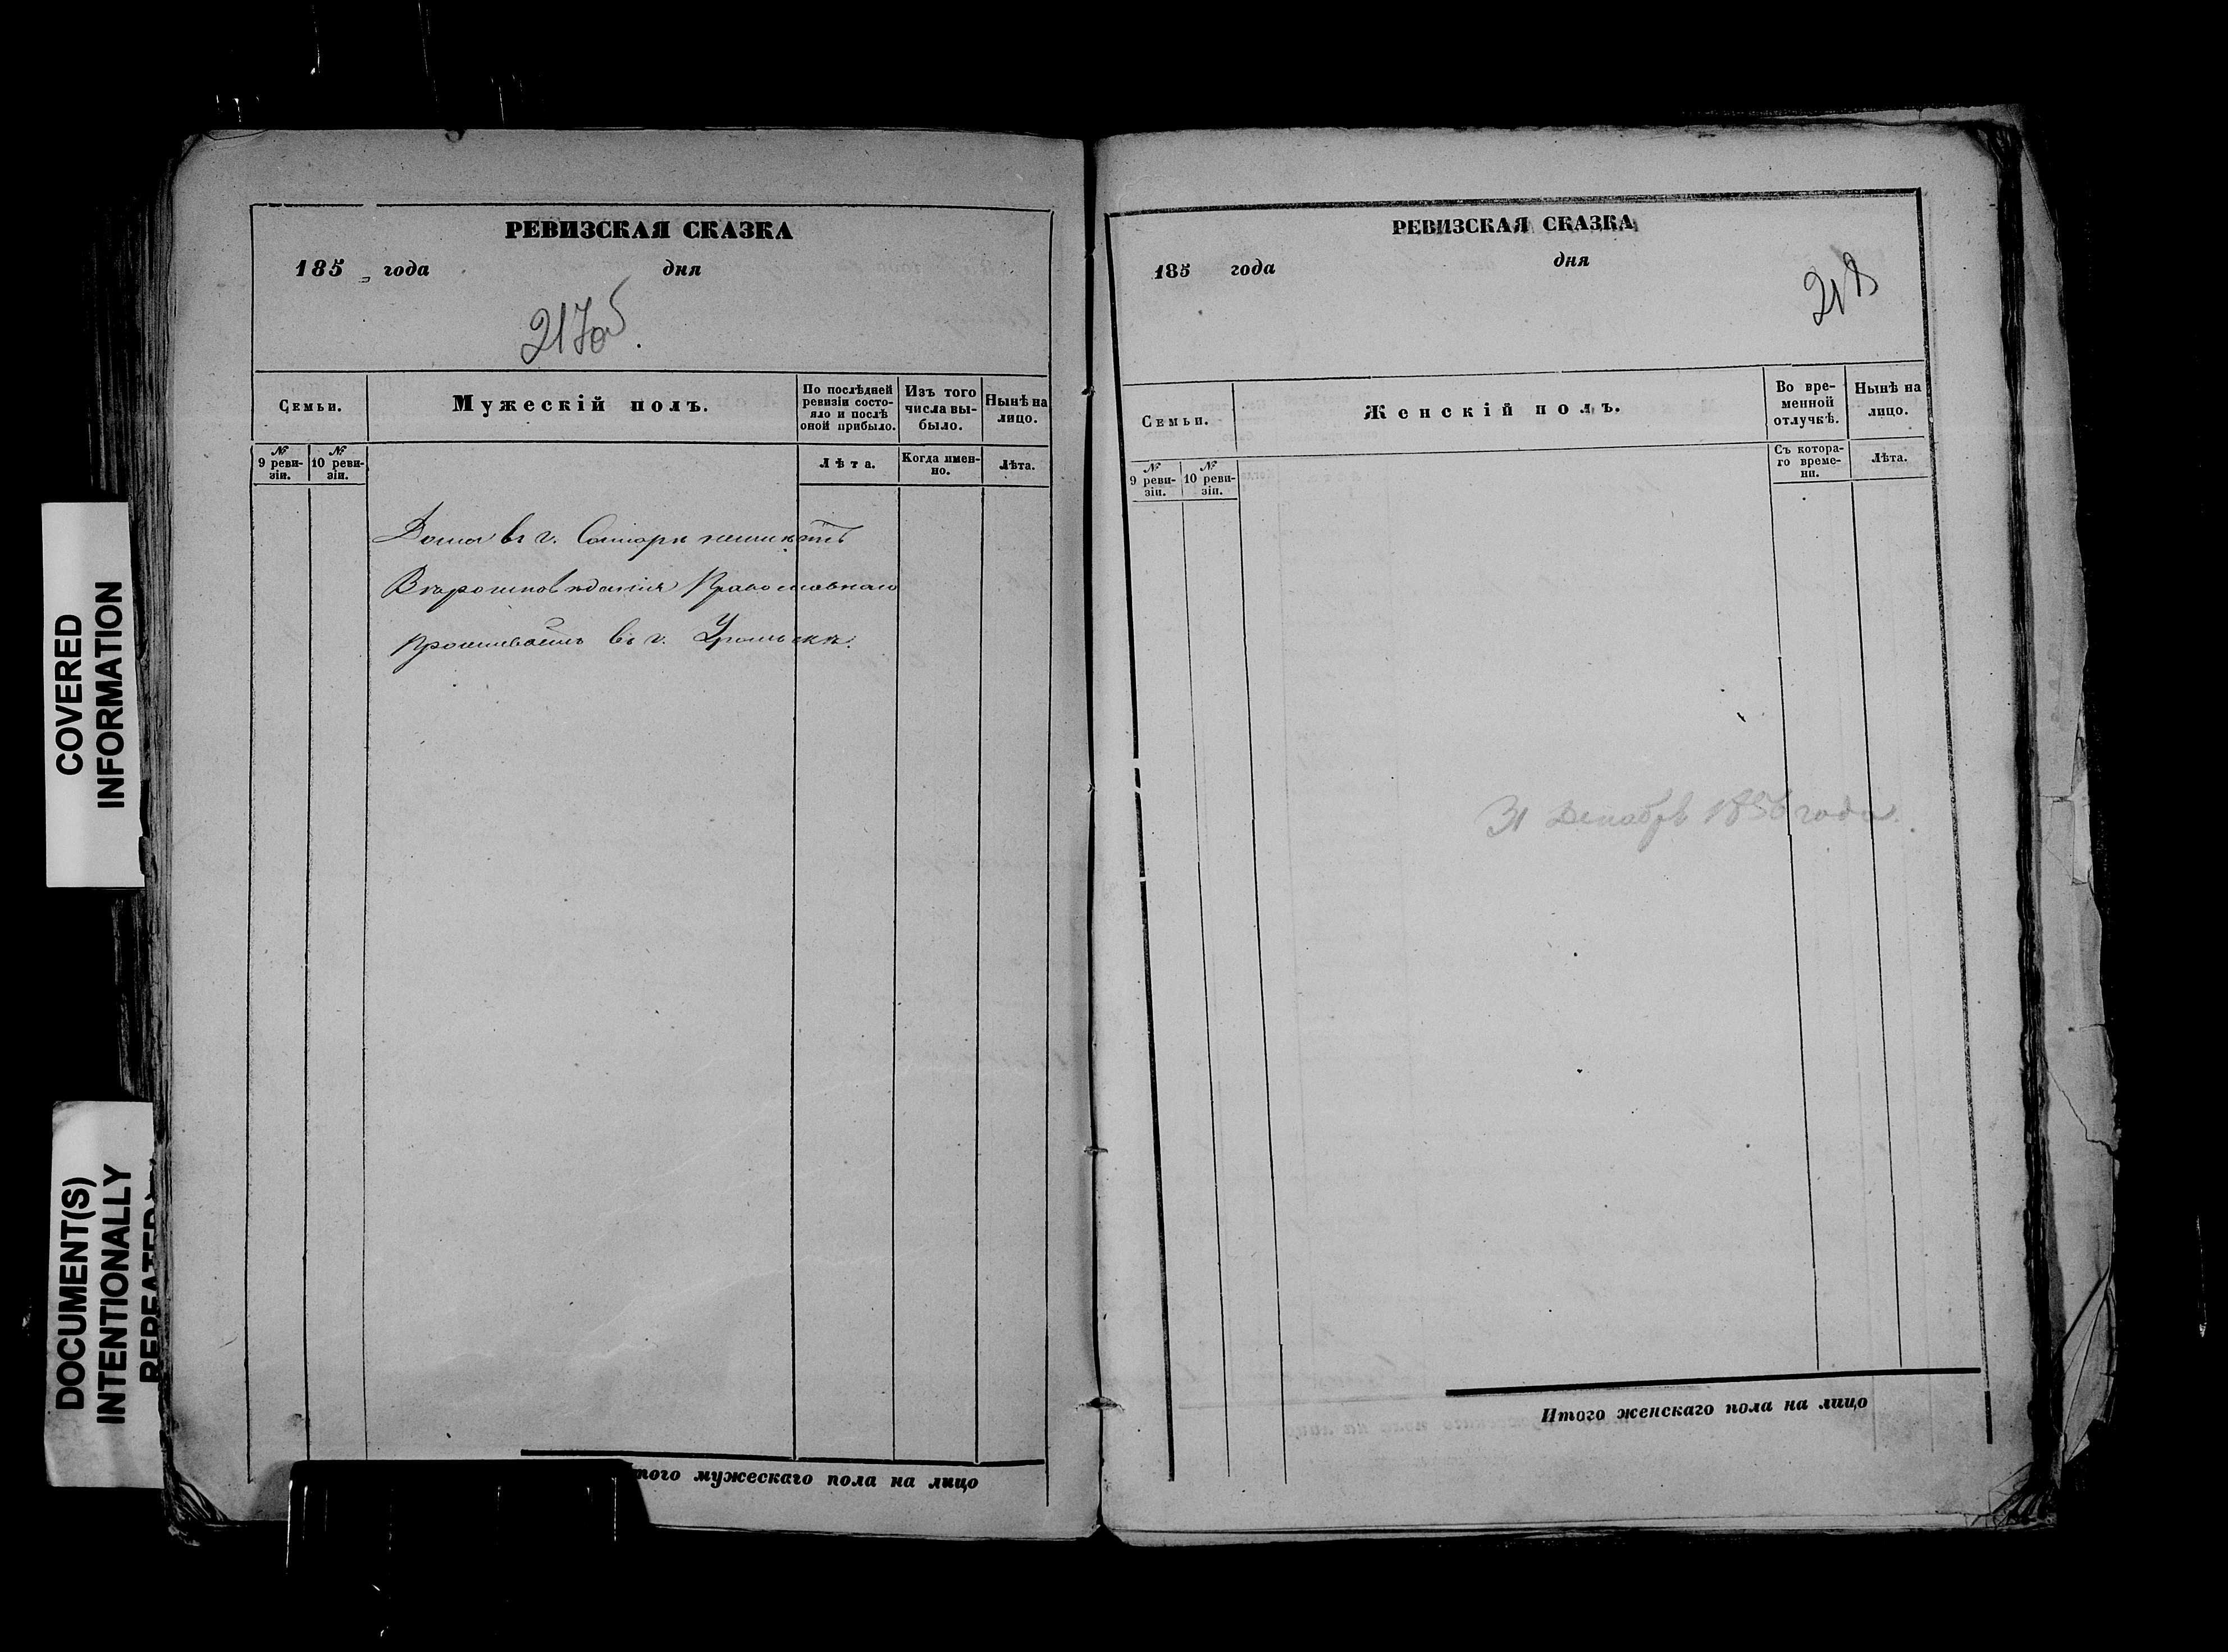 РЕВИЗСКАЯ СКАЗКА
185 года дня
217об.
Семьи.
Мужескій полъ.
По послѣдней ревизіи состояло и послѣ оной прибыло.
Изъ того числа выбыло.
Нынѣ на лицо.
№ 9 ревизіи.
№ 10 ревизіи.
Лѣта.
Когда именно.
Лѣта.
Дома въ г. Самарѣ неимѣетъ
Вѣроисповѣданія Православнаго
проживаетъ въ г. Уральскѣ.
Итого мужескаго пола на лицо
РЕВИЗСКАЯ СКАЗКА
185 года дня
218
Семьи.
Женскій полъ.
Во временной отлучкѣ.
Нынѣ на лицо.
№ 9 ревизіи.
№ 10 ревизіи.
Съ котораго времени.
Лѣта.
31 Декабря 1856 года.
Итого женскаго пола на лицо
COVERED
INFORMATION
DOCUMENT(S)
INTENTIONALLY
REPEATED